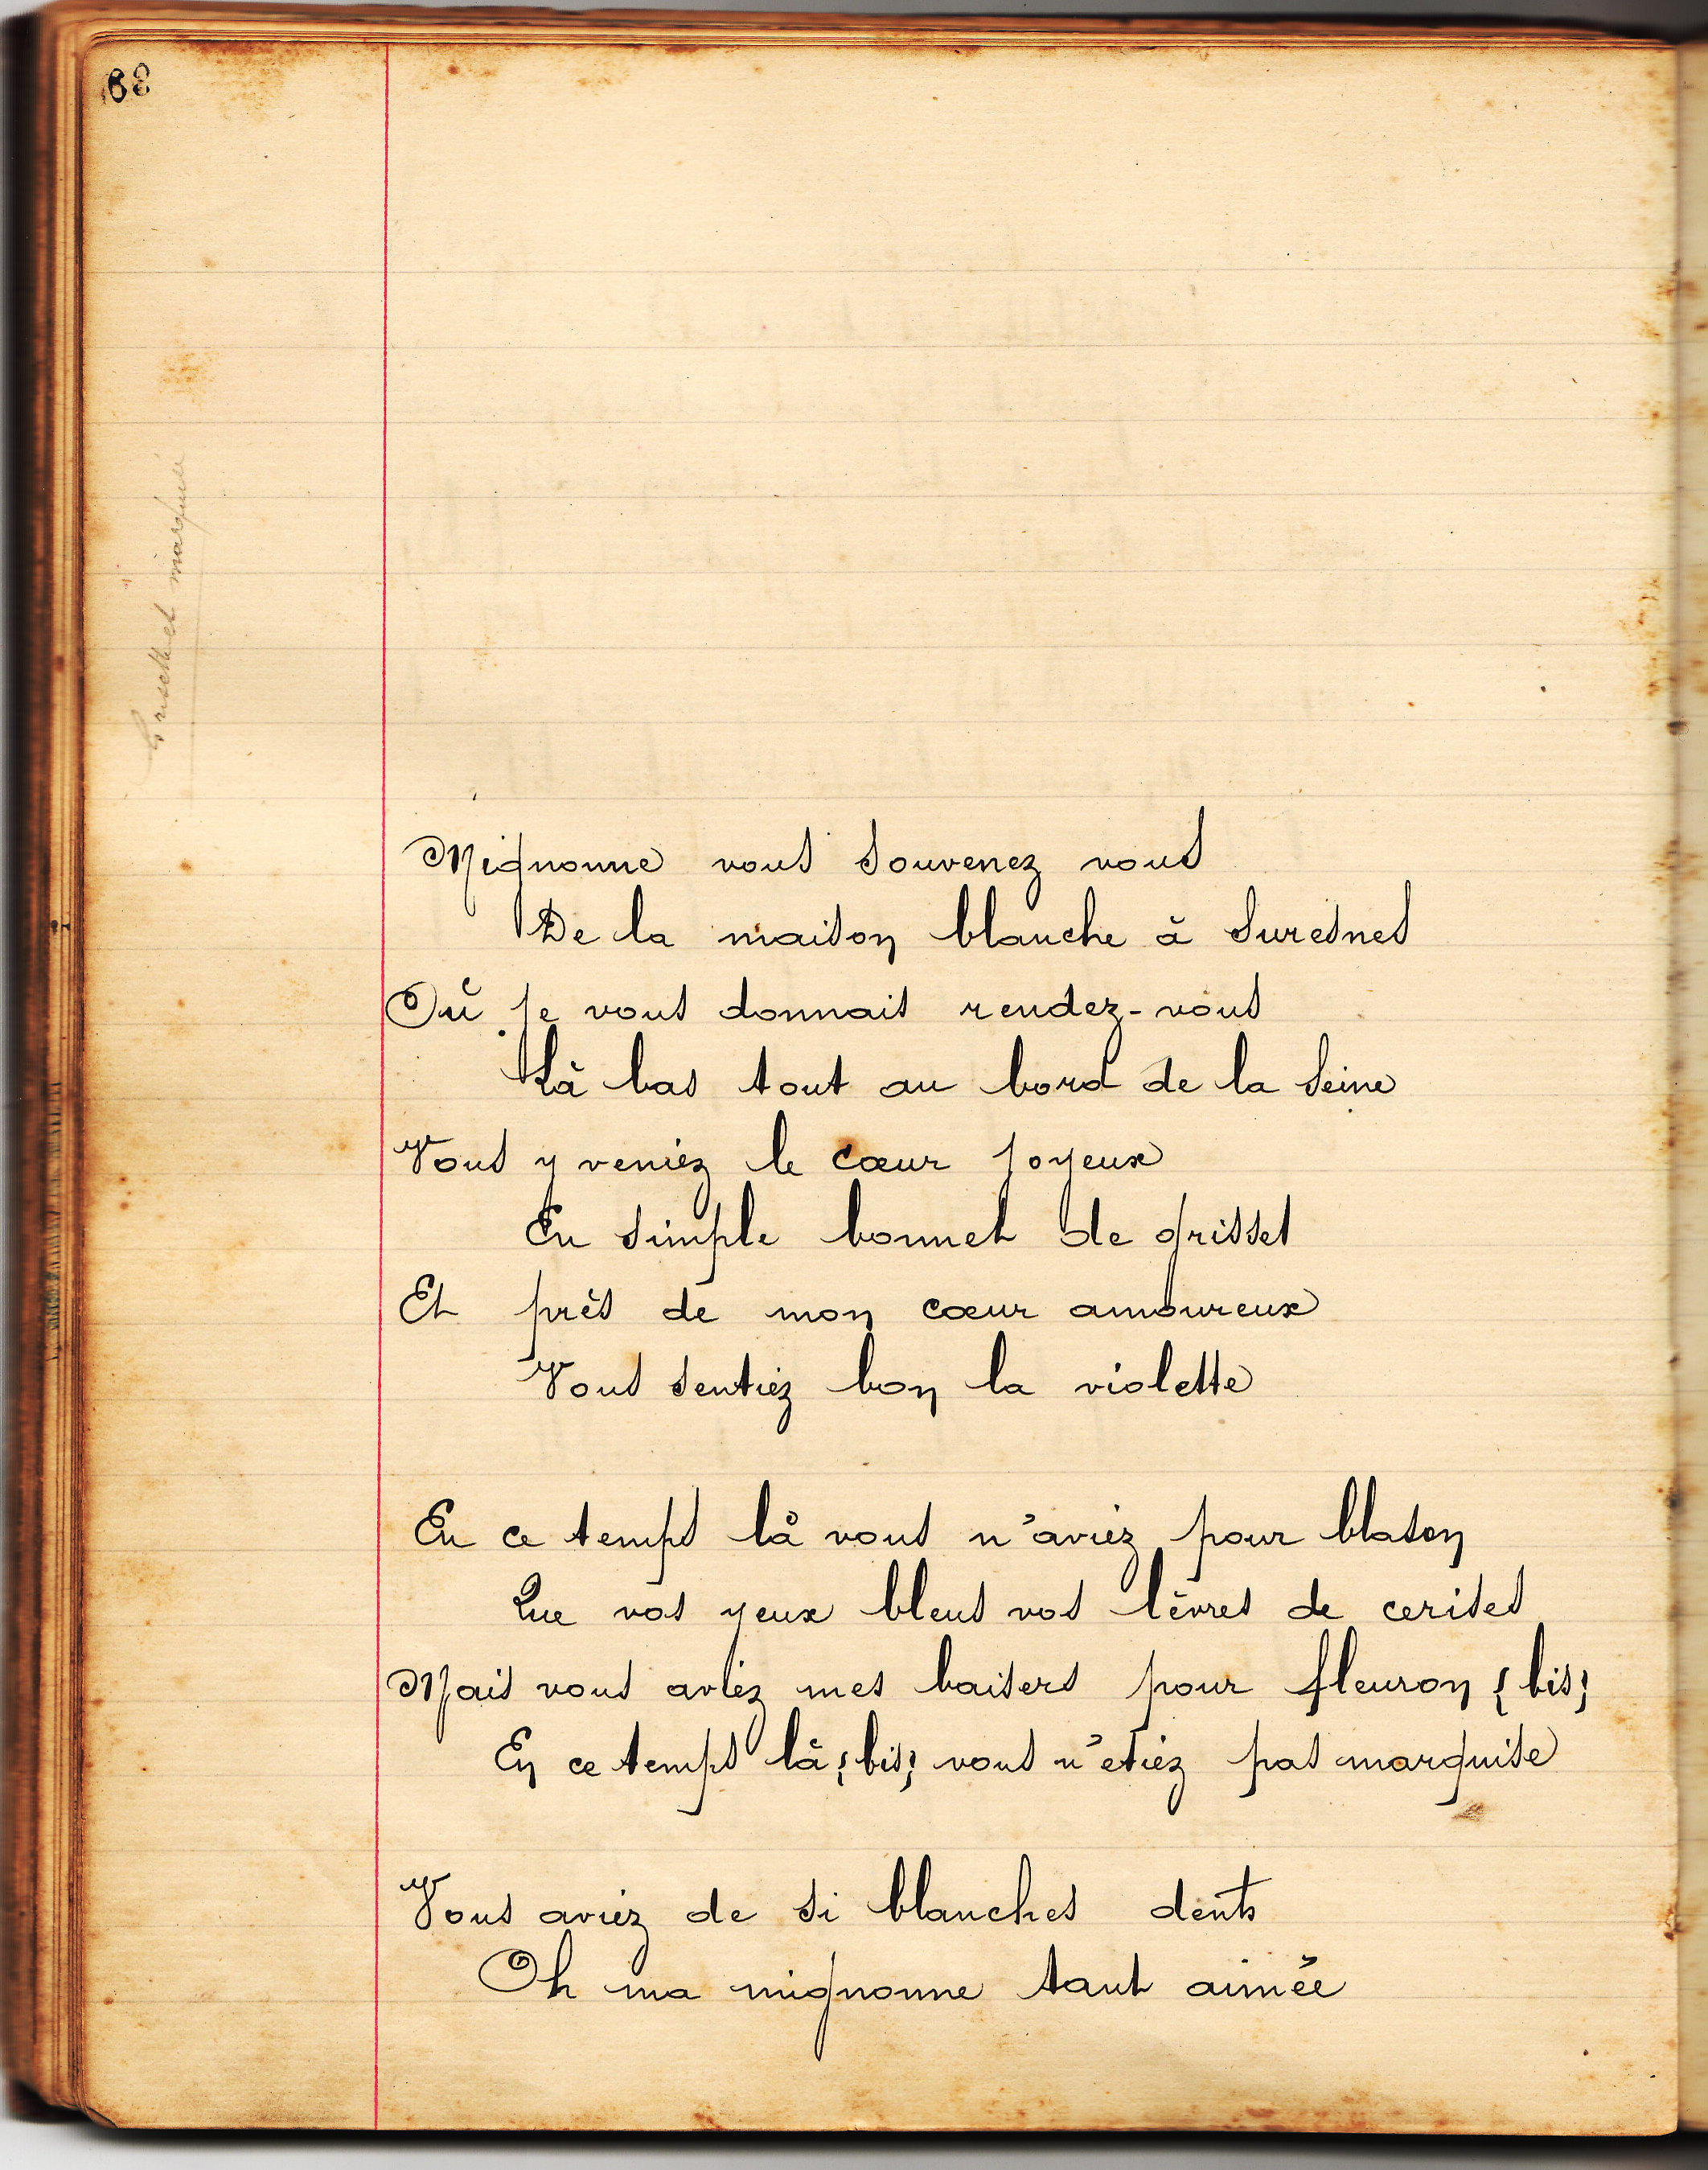 68
Grisette et marquise
Mignonne vous souvenez vous
De la maison blanche à Suresnes
Où je vous donnait rendez-vous
Là bas tout au bord de la Seine
Vous y veniez le cœur joyeux
En simple bonnet de grisset
Et près de mon cœur amoureux
Vous sentiez bon la violette
En ce temps là vous n'aviez pour blason
Que vos yeux bleus vos lèvres de cerises
Mais vous aviez mes baisers pour fleuron {bis}
En ce temps là {bis} vous n'etiez pas marquise
Vous aviez de si blanches dents
Oh ma mignonne tant aimée